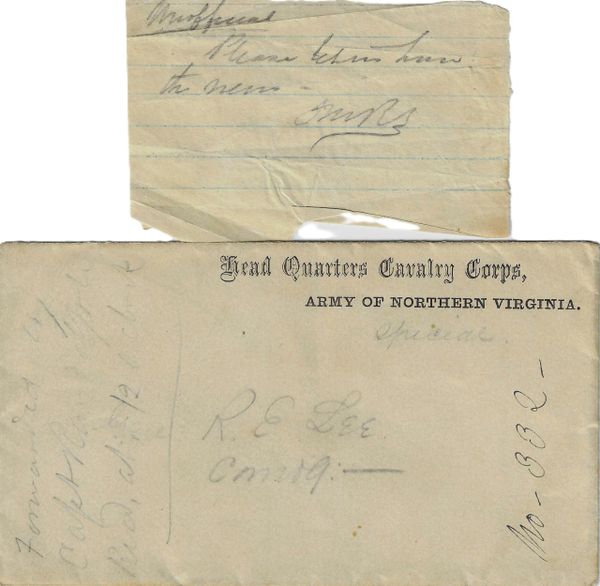 Unofficial
Please let us know
the news -
Head Quarters Cavalry Corps,
ARMY OF NORTHERN VIRGINIA.
Special.
R. E. Lee
Comdg: —
No - 332 -
Forwarded by
Capt
Recd. at 12 O clock